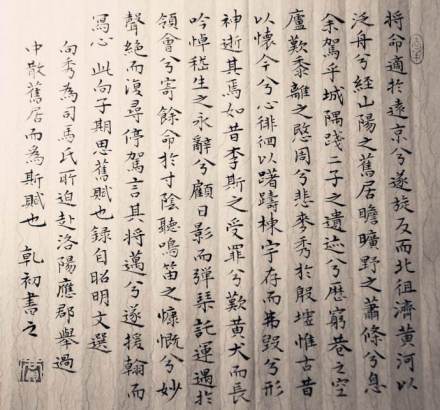 將命適於遠京兮遂旋反而北徂濟黃河以
泛舟兮經山陽之舊居瞻曠野之蕭條兮息
余駕乎城隅踐二子之遺迹兮歷窮巷之空
廬歎黍離之愍周兮悲麥秀於殷墟惟古昔
以懷今兮心徘徊以躇躊棟宇存而弗毀兮形
神逝其焉如昔李斯之受罪兮歎黃犬而長
吟悼嵇生之永辭兮顧日影而彈琴託運遇於
領會兮寄餘命於寸陰聽鳴笛之慷慨兮妙
聲絕而復尋停駕言其將邁兮遂援翰而
寫心 此向子期思舊賦也錄自昭明文選
向秀為司馬氏所迫赴洛陽應郡舉過
中散舊居而為斯賦也 乾初書之